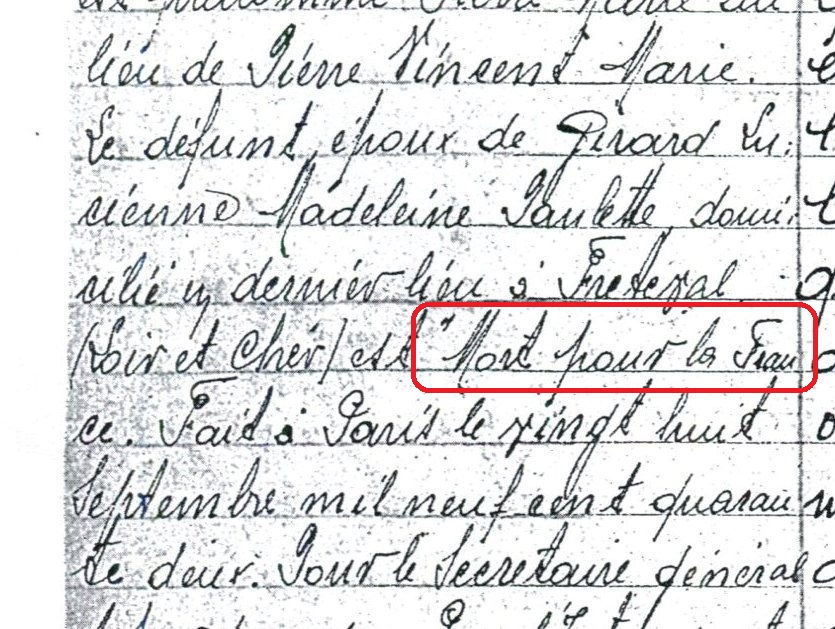 lieu de Pierre Vincent Marie.
Le défunt, époux de Girard Lu-
cienne Madeleine Paulette, domi-
cilié en dernier lieu à Freteval
(Loir et Cher) est "Mort pour la Fran
ce. Fait à Paris le vingt huit
Septembre mil neuf cent quaran
te deux. Pour le Secrétaire général